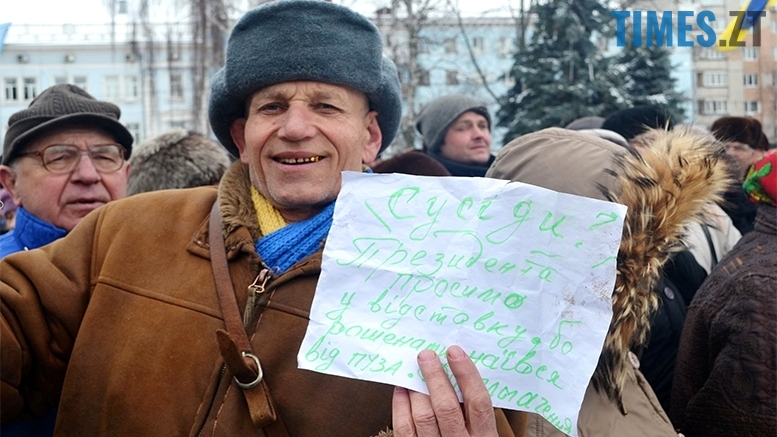 TIMES.ZT
Сусіди!
Президента
просимо
у відставку, бо
рошена наївся
від ПУЗА.